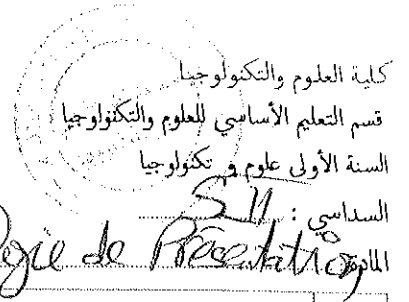 كلية العلوم والتكنولوجيا
قسم التعليم الأساسي للعلوم والتكنولوجيا
السنة الأولى علوم و تكنولوجيا
السداسي :
المادة de Présentation